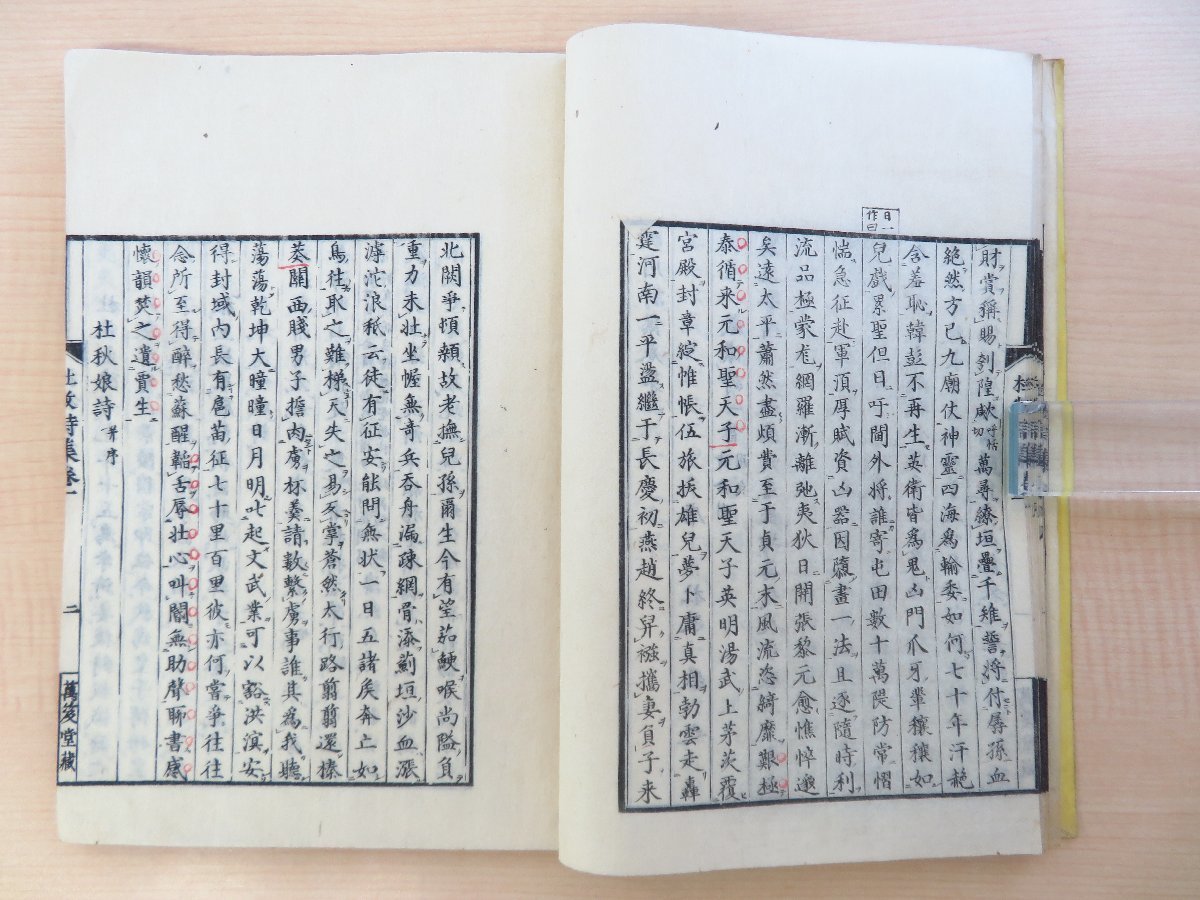 日一
作曰
財賞稱賜刳隍㰹呼恬切萬尋繚垣疊千雉誓將付孱孫血
絶然方已九廟仗神靈四海爲輸委如何七十年汗赩
含羞恥韓彭不再生英衛皆爲鬼凶門爪牙輩穰穰如
兒戲累聖但日吁閫外將誰寄屯田數十萬隄防常慴
惴急征赴軍須厚賦資凶器因隳畫一法且逐隨時利
流品極蒙尨網羅漸離弛夷狄日開張黎元愈憔悴邈
矣遠太平蕭然盡煩費至于貞元末風流恣綺靡艱極
泰循來元和聖天子元和聖天子英明湯武上茅茨覆
宮殿封章綻帷帳伍旅拔雄兒夢卜庸真相勃雲走轟
霆河南一平盪繼于長慶初燕趙終舁襁攜妻負子來
北闕爭頓顙故老撫兒孫爾生今有望茹鯁喉尚隘負
重力未壯坐幄無奇兵吞舟漏疎網骨添薊垣沙血漲
滹沱浪秪云徒有征安能問無狀一日五諸矦奔亡如
鳥往取之難梯天失之易反掌蒼然太行路翦翦還榛
莽關西賤男子誓肉虜杯羹請數繫虜事誰其爲我聽
蕩蕩乾坤大曈曈日月明叱起文武業可以豁洪溟安
得封域內長有扈苗征七十里百里彼亦何當爭往往
念所至得醉愁蘇醒韜舌辱壯心叫閽無助聲聊書感
懷韻焚之遺賈生
杜秋娘詩 并序
杜牧詩集卷一
二
萬笈堂藏